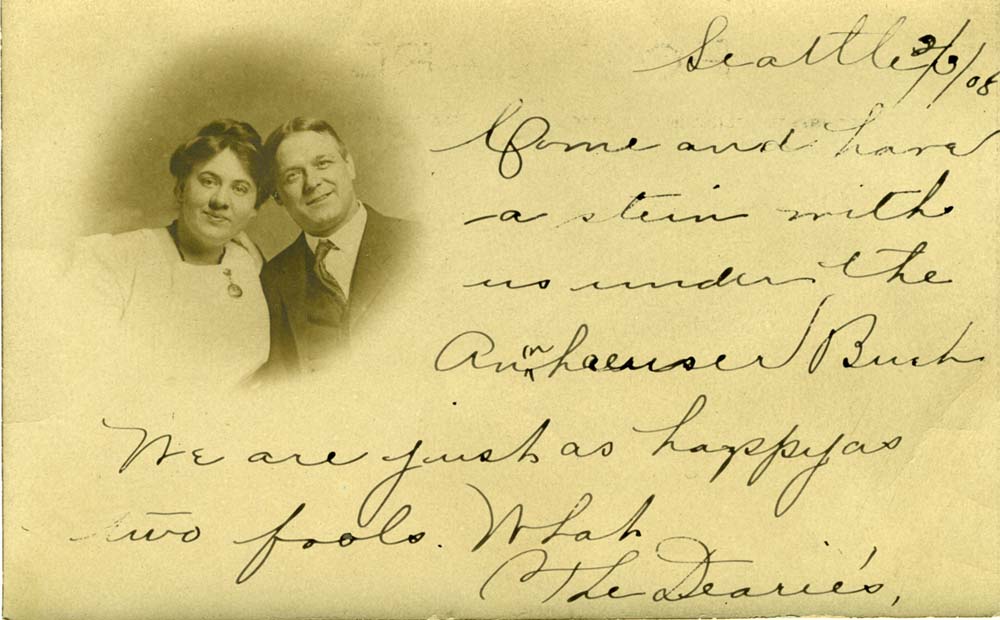 Seattle 2/3/08
Come and have
a stein with
us under the
Anhaeuser Bush
We are just as happy as
two fools. What
The Dearie's,